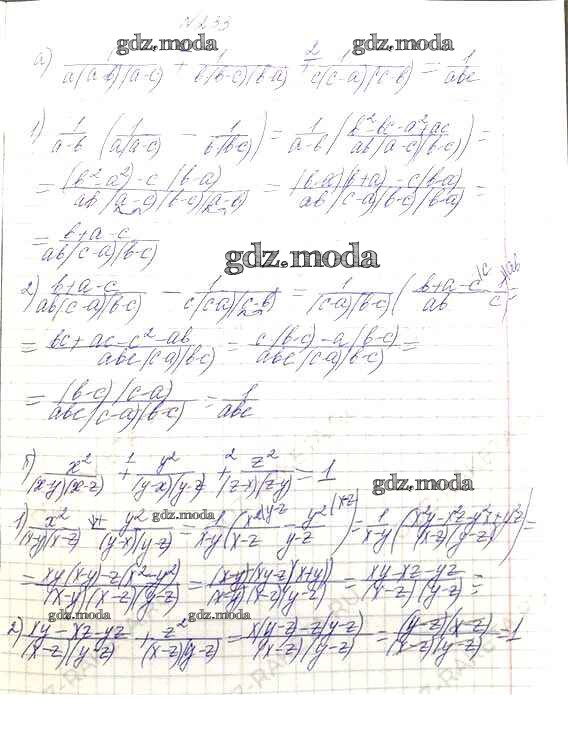 № 233
gdz.moda gdz.moda
а) 1/(a(a-b)(a-c)) + 1/(b(b-c)(b-a)) + 1/(c(c-a)(c-b)) = 1/abc
1) 1/(a-b) (1/(a(a-c)) - 1/(b(b-c))) = 1/(a-b) ((b²-bc-a²+ac)/(ab(a-c)(b-c))) =
= ((b²-a²)-c(b-a))/(ab(a-c)(b-c)(a-b)) = ((b-a)(b+a)-c(b-a))/(ab(c-a)(b-c)(b-a)) =
= (b+a-c)/(ab(c-a)(b-c))
gdz.moda
2) (b+a-c)/(ab(c-a)(b-c)) - 1/(c(c-a)(c-b)) = 1/((c-a)(b-c)) ((b+a-c)/ab - 1/c) =
= (bc+ac-c²-ab)/(abc(c-a)(b-c)) = (c(b-c)-a(b-c))/(abc(c-a)(b-c)) =
= ((b-c)(c-a))/(abc(c-a)(b-c)) = 1/abc
б) x²/((x-y)(x-z)) + y²/((y-x)(y-z)) + z²/((z-x)(z-y)) = 1
gdz.moda
1) x²/((x-y)(x-z)) + y²/((y-x)(y-z)) = 1/(x-y) (x²/(x-z) - y²/(y-z)) = 1/(x-y) ((x²y-x²z-y²x+y²z)/((x-z)(y-z))) =
gdz.moda
= (xy(x-y)-z(x²-y²))/((x-y)(x-z)(y-z)) = ((x-y)(xy-z)(x+y))/((x-y)(x-z)(y-z)) = (xy-xz-yz)/((x-z)(y-z)) =
gdz.moda gdz.moda
2) (xy-xz-yz)/((x-z)(y-z)) + z²/((x-z)(y-z)) = (x(y-z)-z(y-z))/((x-z)(y-z)) = ((y-z)(x-z))/((x-z)(y-z)) = 1